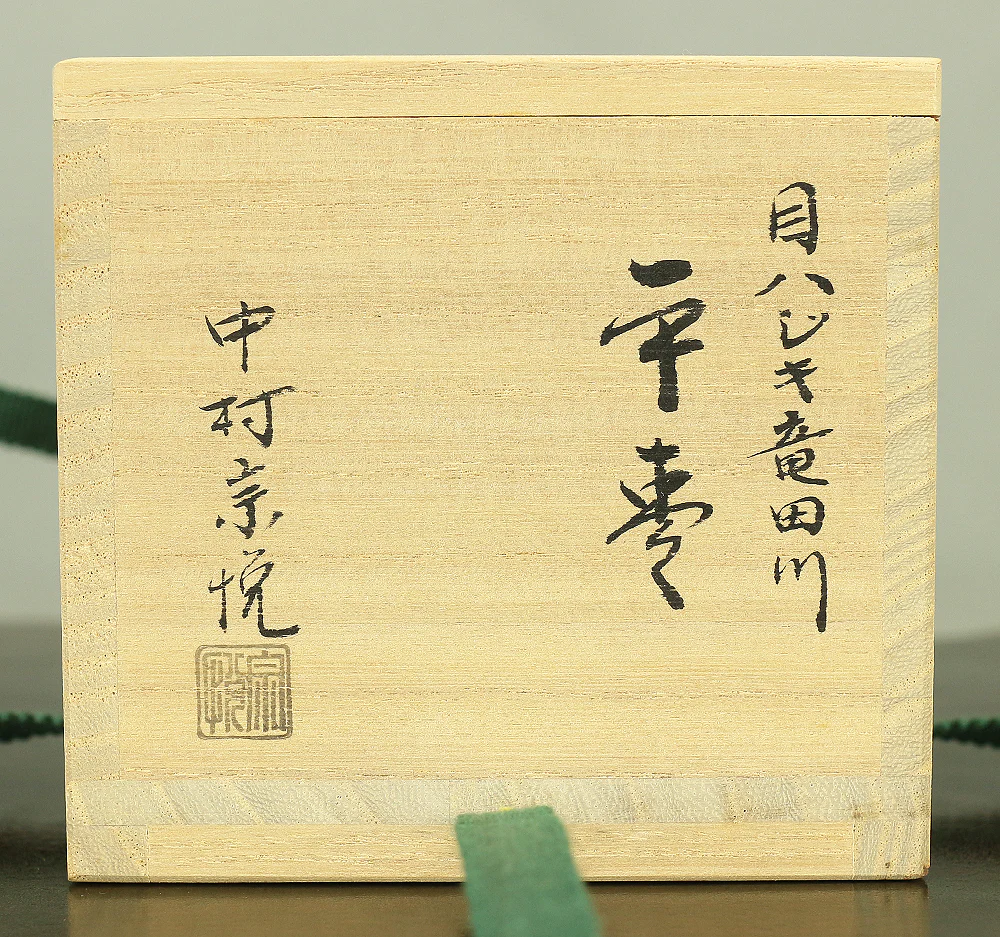 目ハジキ竜田川
平棗
中村宗悦
宗悦